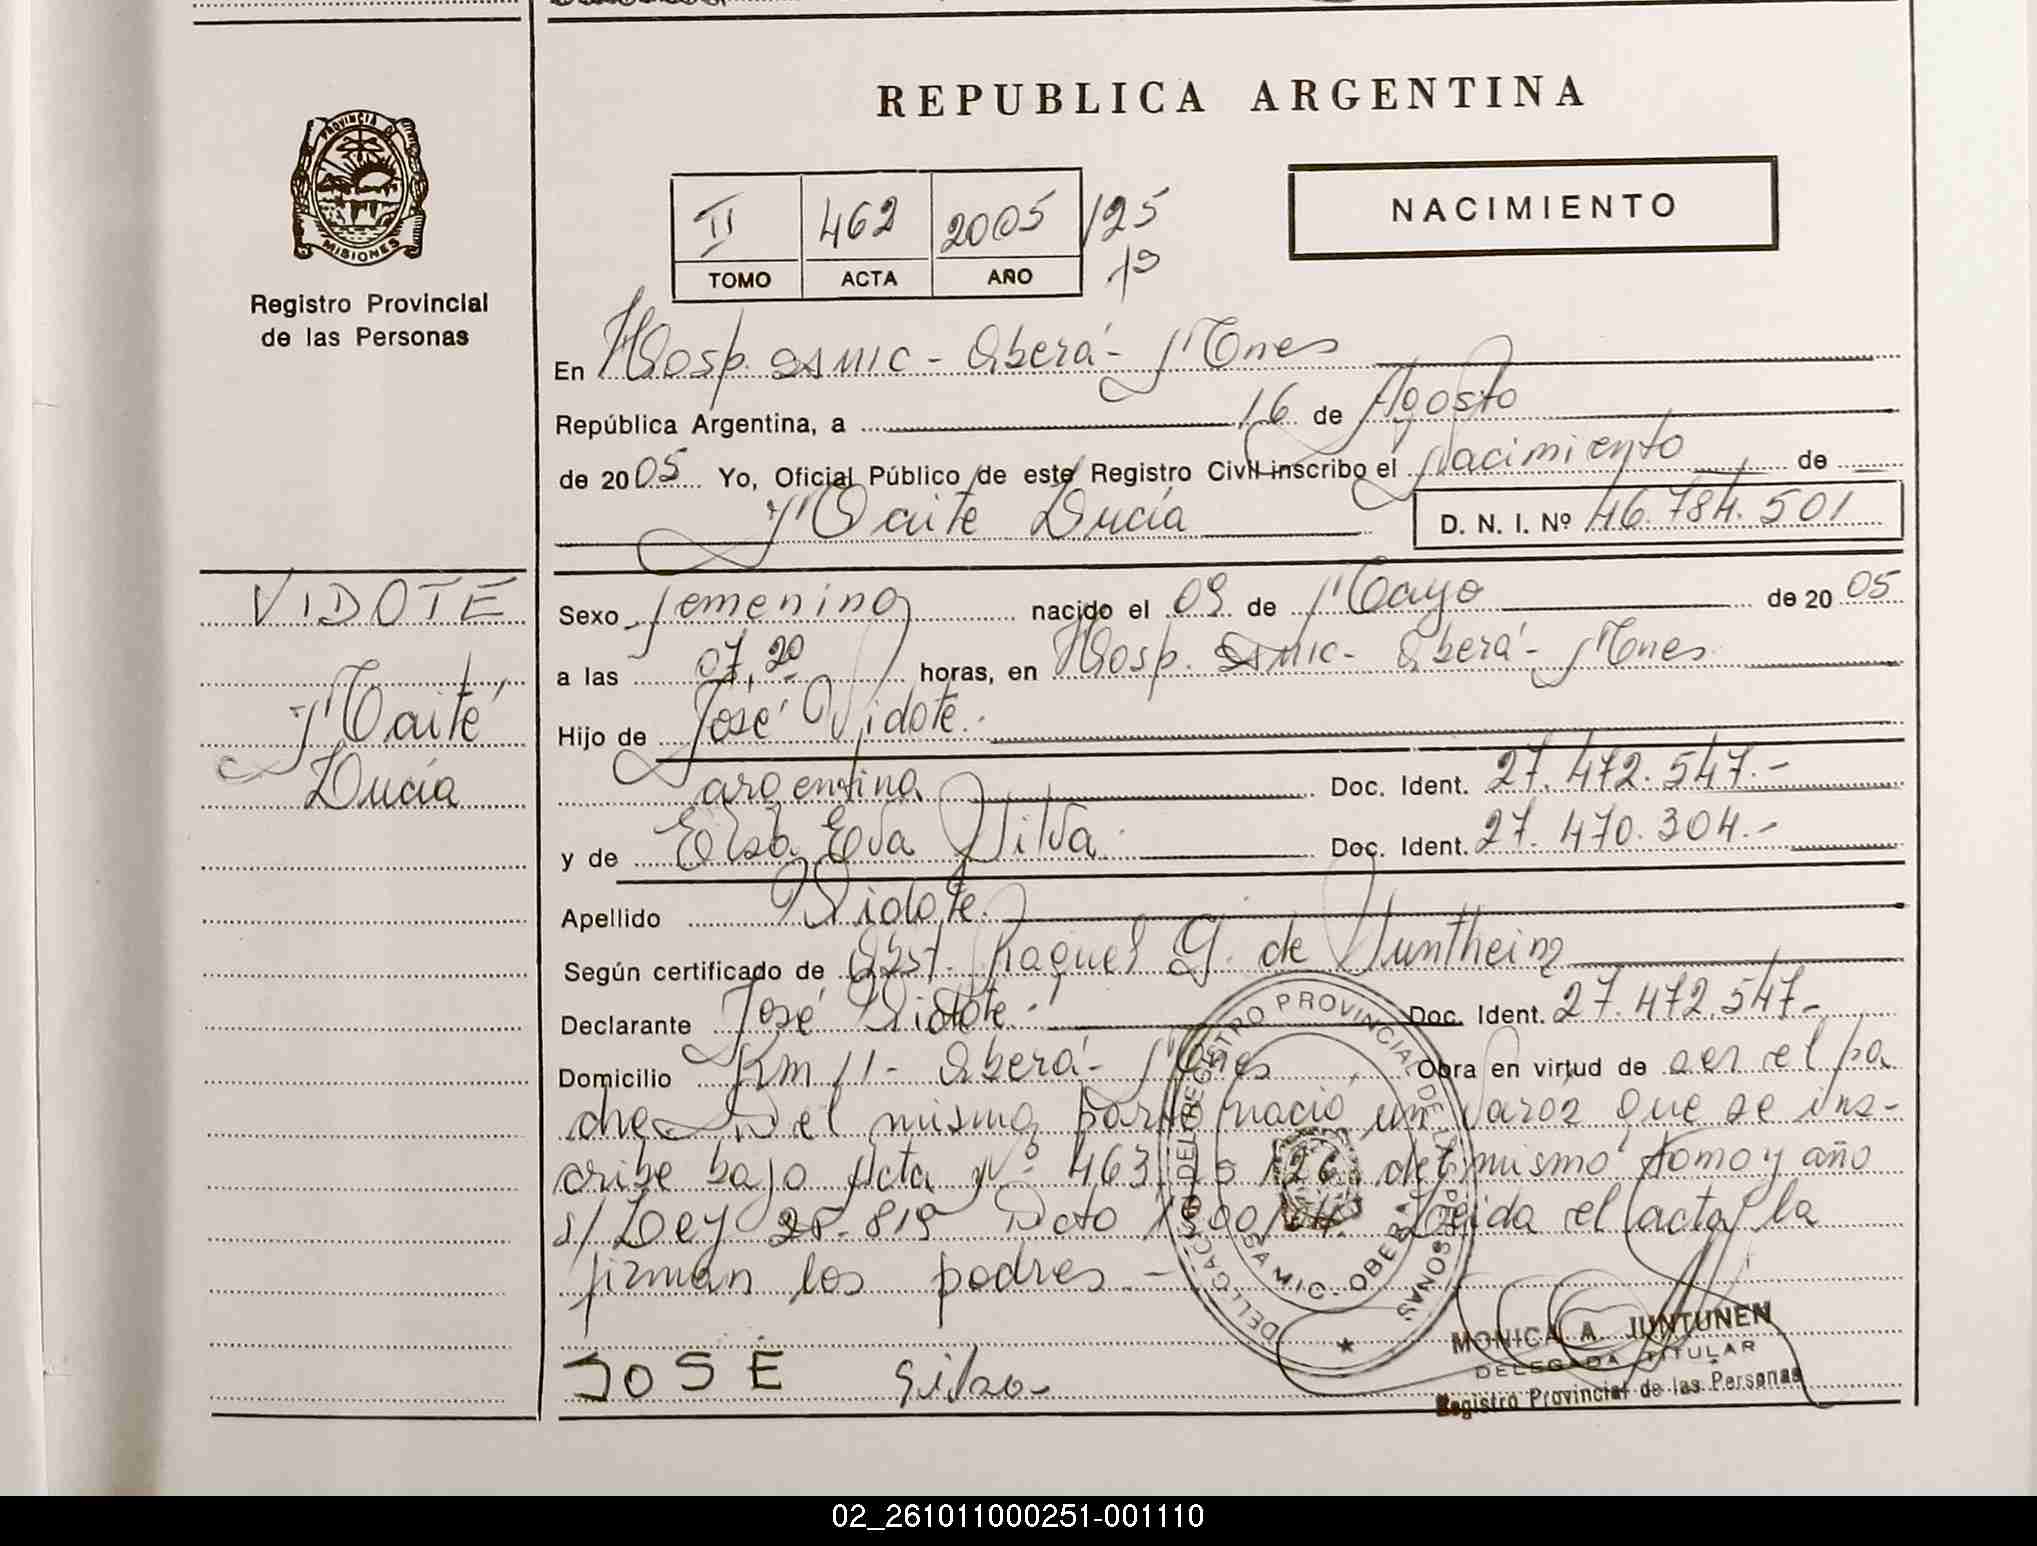 REPUBLICA ARGENTINA
PROVINCIA DE
MISIONES
Registro Provincial
de las Personas
II 462 2005 /125
TOMO ACTA AÑO
NACIMIENTO
En Hosp. SAMIC - Oberá - Mnes
República Argentina, a 16 de Agosto
de 2005 Yo, Oficial Público de este Registro Civil inscribo el Nacimiento de
Maite Lucía D. N. I. Nº 46.784.501
VIDOTE
Maité
Lucía
Sexo femenino nacido el 09 de Mayo de 2005
a las 07,20 horas, en Hosp. SAMIC - Oberá - Mnes
Hijo de José Vidote.
argentina Doc. Ident. 27.472.547.-
y de Elsa Eva Silva. Doc. Ident. 27.470.304.-
Apellido Vidote.
Según certificado de Obst. Raquel G. de Huntheinz
Declarante José Vidote. Doc. Ident. 27.472.547-
Domicilio Km 11 - Oberá - Mnes Obra en virtud de ser el pa
dre. Del mismo parto nació un Varón que se ins-
cribe bajo Acta Nº 463 126 del mismo tomo y año
s/ Ley 25.819 Dcto 1500/04. Leída el acta la
firman los padres -
JOSE Silva
DELEGACION DEL REGISTRO PROVINCIAL DE LAS PERSONAS
SAMIC - OBERA
MONICA A. JUNTUNEN
DELEGADA TITULAR
Registro Provincial de las Personas
02_261011000251-001110